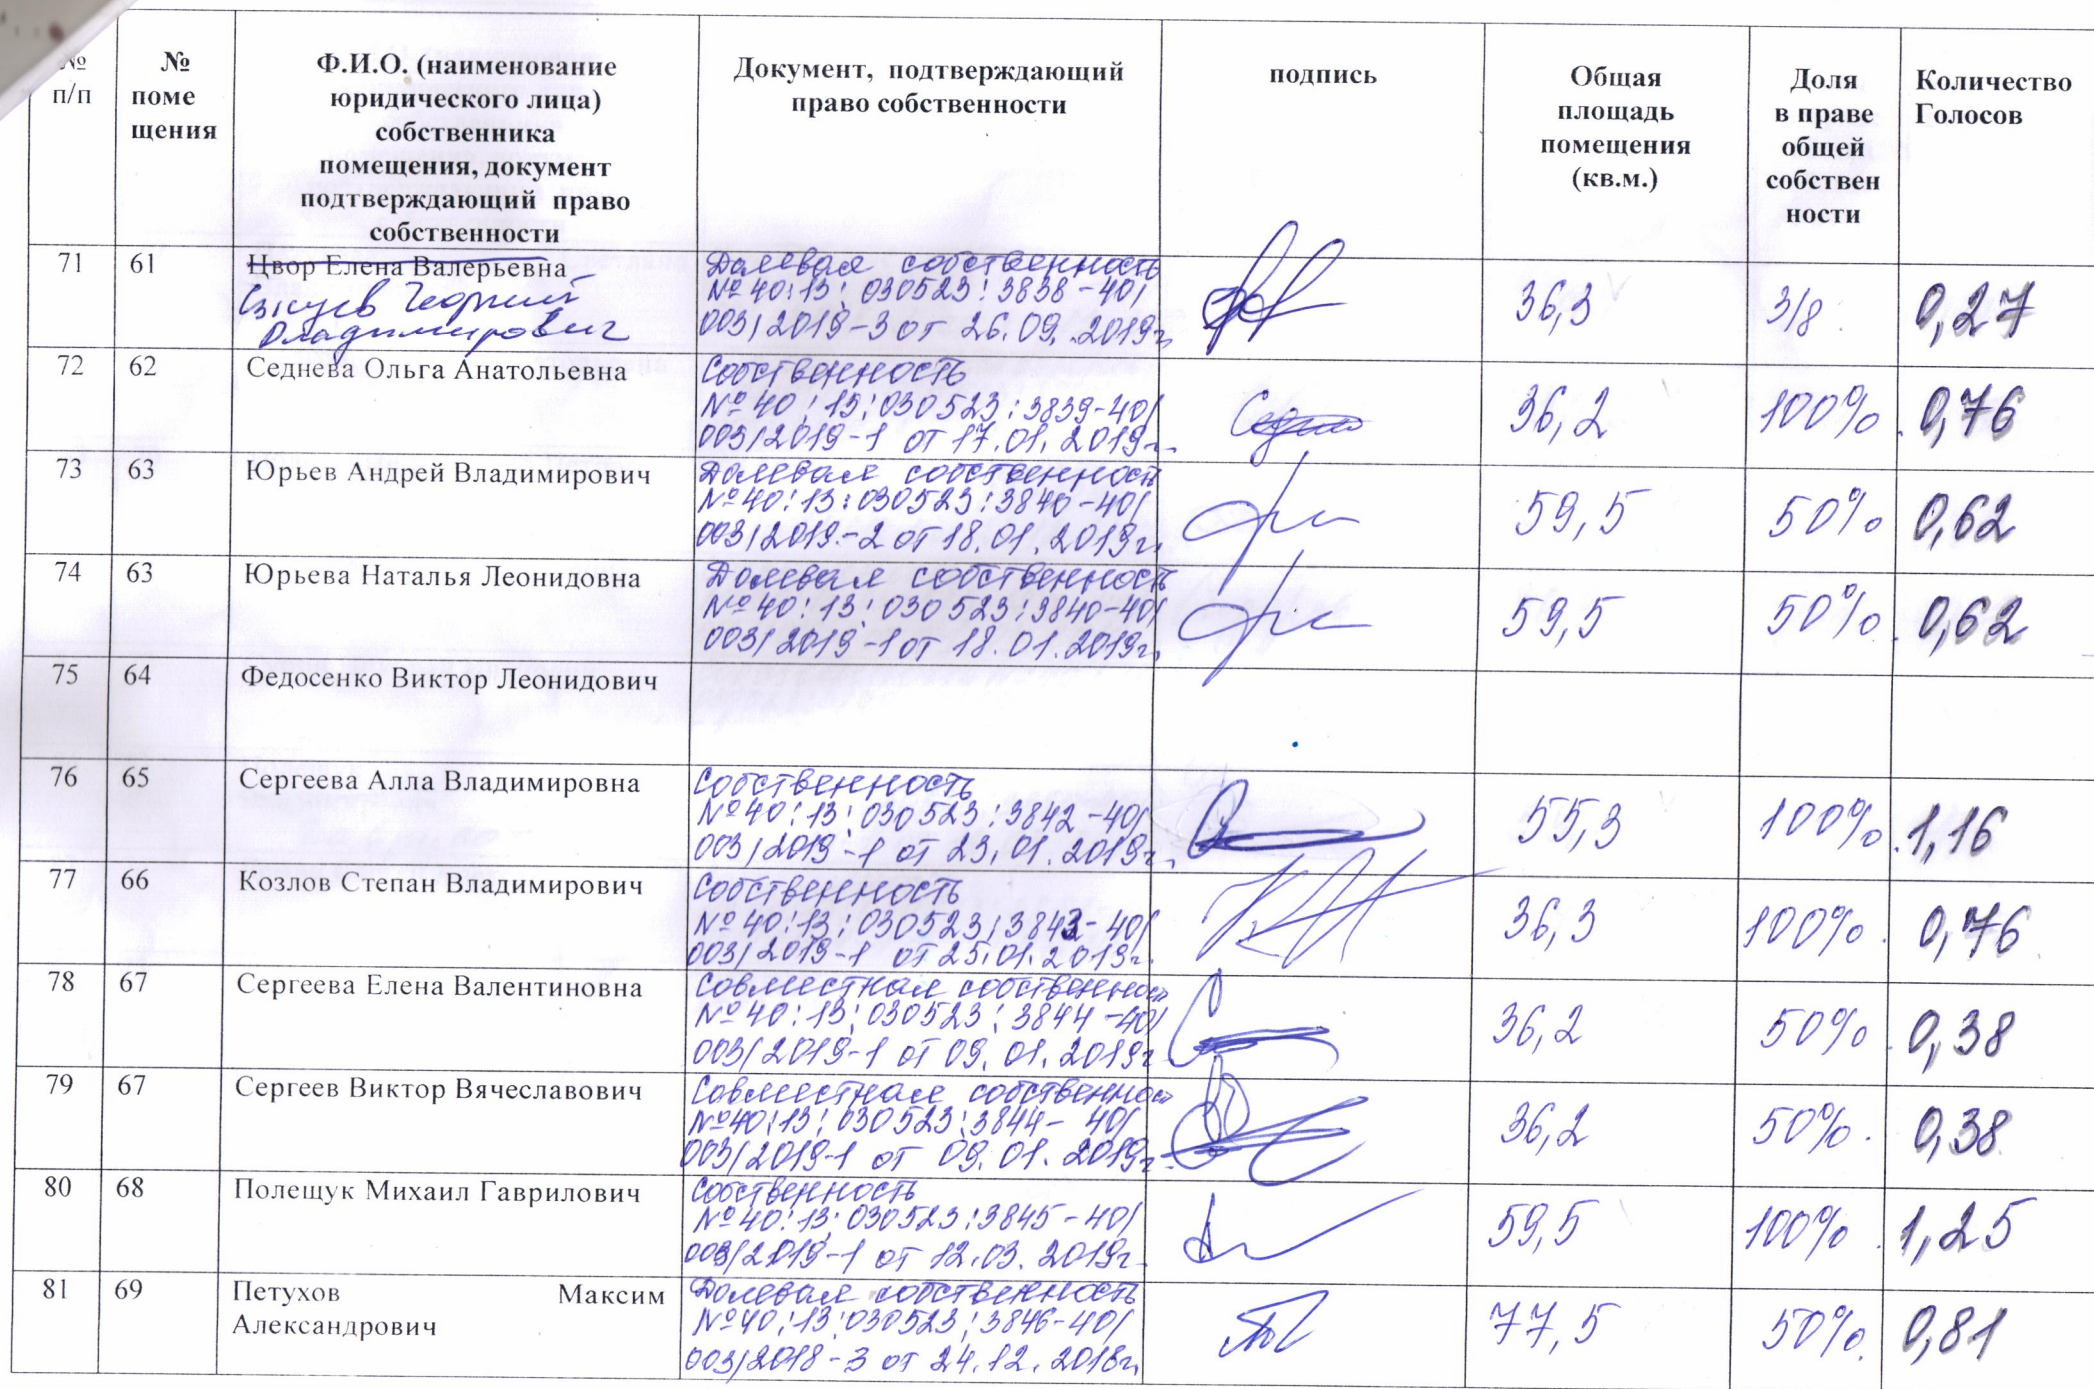 № п/п
№ поме щения
Ф.И.О. (наименование
юридического лица)
собственника
помещения, документ
подтверждающий право
собственности
Документ, подтверждающий
право собственности
подпись
Общая
площадь
помещения
(кв.м.)
Доля
в праве
общей
собствен
ности
Количество
Голосов
71 61 Цвор Елена Валерьевна
Георгий
Владимирович
Долевая собственность
№ 40:13:030523:3838-40/
003/2019-3 от 26.09.2019г.
36,3 3/8 0,27
72 62 Седнева Ольга Анатольевна
Собственность
№ 40:13:030523:3839-40/
003/2019-1 от 17.01.2019г.
36,2 100% 0,76
73 63 Юрьев Андрей Владимирович
Долевая собственность
№ 40:13:030523:3840-40/
003/2019-2 от 18.01.2019г.
59,5 50% 0,62
74 63 Юрьева Наталья Леонидовна
Долевая собственность
№ 40:13:030523:3840-40/
003/2019-1 от 18.01.2019г.
59,5 50% 0,62
75 64 Федосенко Виктор Леонидович
76 65 Сергеева Алла Владимировна
Собственность
№ 40:13:030523:3842-40/
003/2019-1 от 23.01.2019г.
55,3 100% 1,16
77 66 Козлов Степан Владимирович
Собственность
№ 40:13:030523:3843-40/
003/2019-1 от 25.01.2019г.
36,3 100% 0,76
78 67 Сергеева Елена Валентиновна
Совместная собственность
№ 40:13:030523:3844-40/
003/2019-1 от 09.01.2019г.
36,2 50% 0,38
79 67 Сергеев Виктор Вячеславович
Совместная собственность
№ 40:13:030523:3844-40/
003/2019-1 от 09.01.2019г.
36,2 50% 0,38
80 68 Полещук Михаил Гаврилович
Собственность
№ 40:13:030523:3845-40/
003/2019-1 от 12.03.2019г.
59,5 100% 1,25
81 69 Петухов Максим
Александрович
Долевая собственность
№ 40:13:030523:3846-40/
003/2018-3 от 24.12.2018г.
77,5 50% 0,81